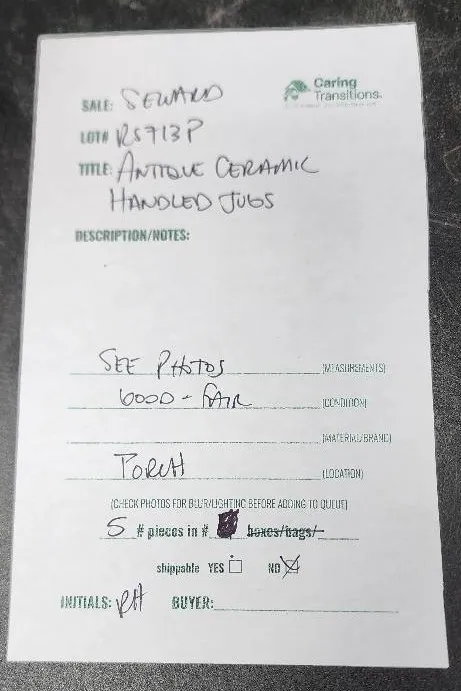 Caring
Transitions.
SALE: SEWARD
LOT# RS713P
TITLE: ANTIQUE CERAMIC
HANDLED JUGS
DESCRIPTION/NOTES:
SEE PHOTOS (MEASUREMENTS)
GOOD - FAIR (CONDITION)
(MATERIAL/BRAND)
PORCH (LOCATION)
(CHECK PHOTOS FOR BLUR/LIGHTING BEFORE ADDING TO QUEUE)
5 # pieces in # boxes/bags/
shippable YES NO
INITIALS: RH BUYER: